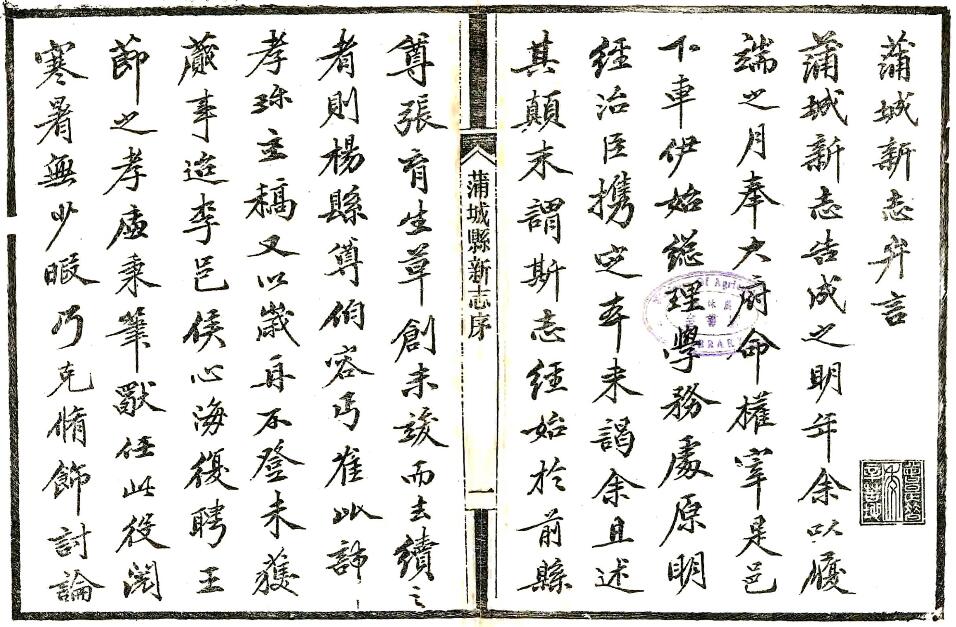 蒲城新志弁言
蒲城新志告成之明年余以履
端之月奉大府命權宰是邑
下車伊始總理學務處原明
經治臣攜定本来謁余且述
其顛末謂斯志經始於前縣
蒲城縣新志序
一
尊張育生草創未竣而去續之
者則楊縣尊伯容丐崔
孝珎主稿又以歲再不登未獲
蕆事迨李邑侯心海復聘王
莭之孝廉秉筆任此役閱
寒暑無少暇乃克脩飾討論